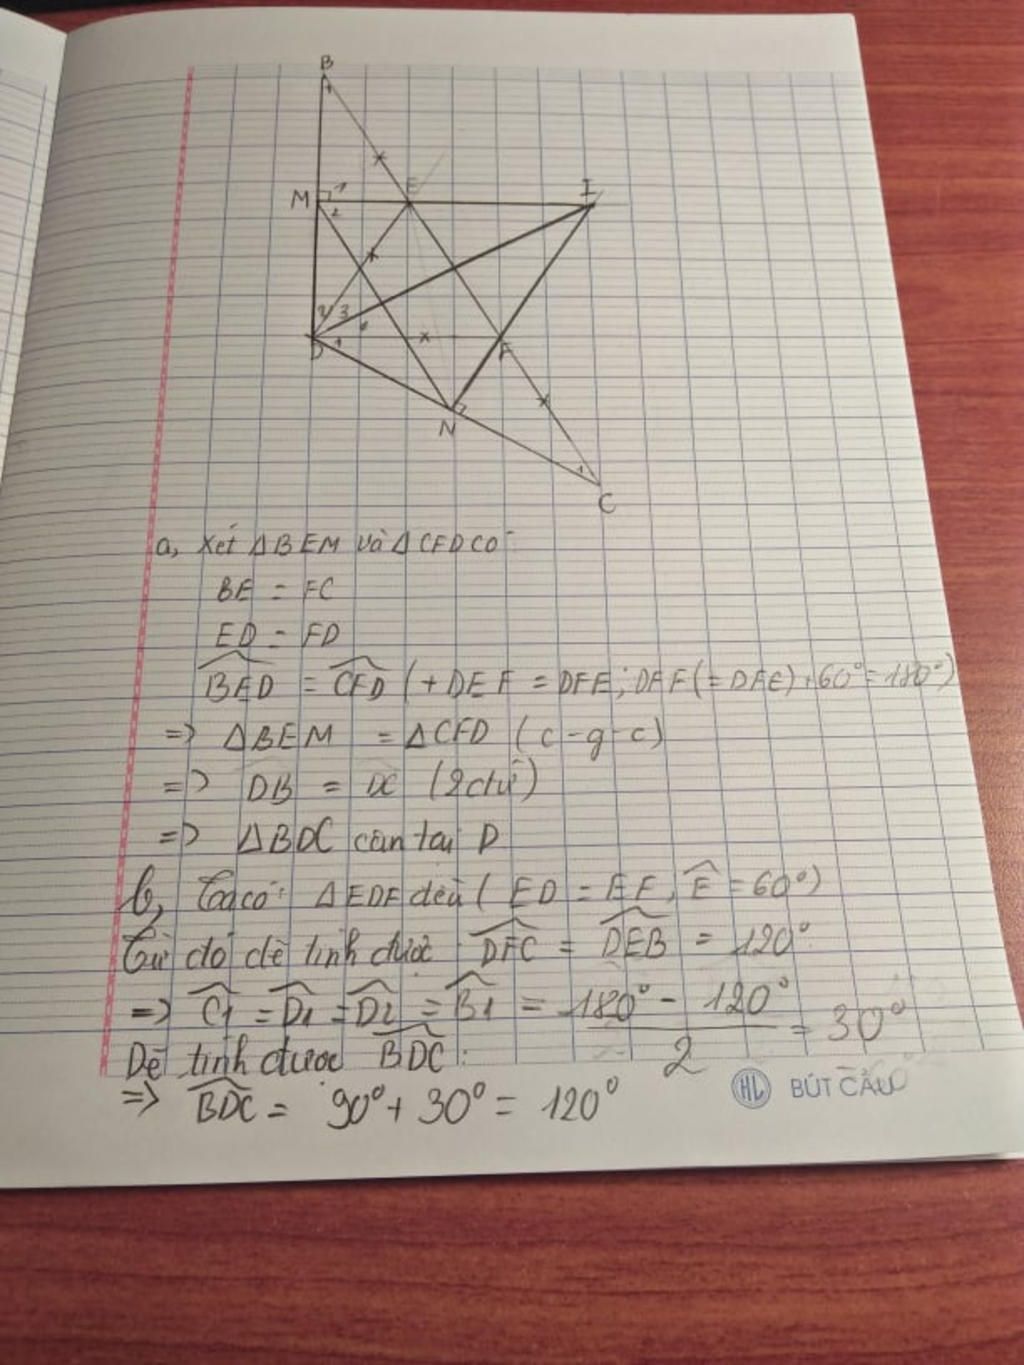 B
M 1
2
E
I
2 3
D 1
F
N
1
C
a, Xét ΔBEM và ΔCFD có:
BE = FC
ED = FD
BED = CFD (+ DEF = DFE; DEF (= DFE) + 60° = 180°)
=> ΔBEM = ΔCFD (c-g-c)
=> DB = DC (2ctứ)
=> ΔBDC cân tại D
b, Ta có: ΔEDF đều ( ED = EF, E = 60°)
Từ đó dễ tính được DFC = DEB = 120°
=> C1 = D1 = D2 = B1 = 180° - 120° / 2 = 30°
Dễ tính được BDC:
=> BDC = 90° + 30° = 120°
HL BÚT CẦU